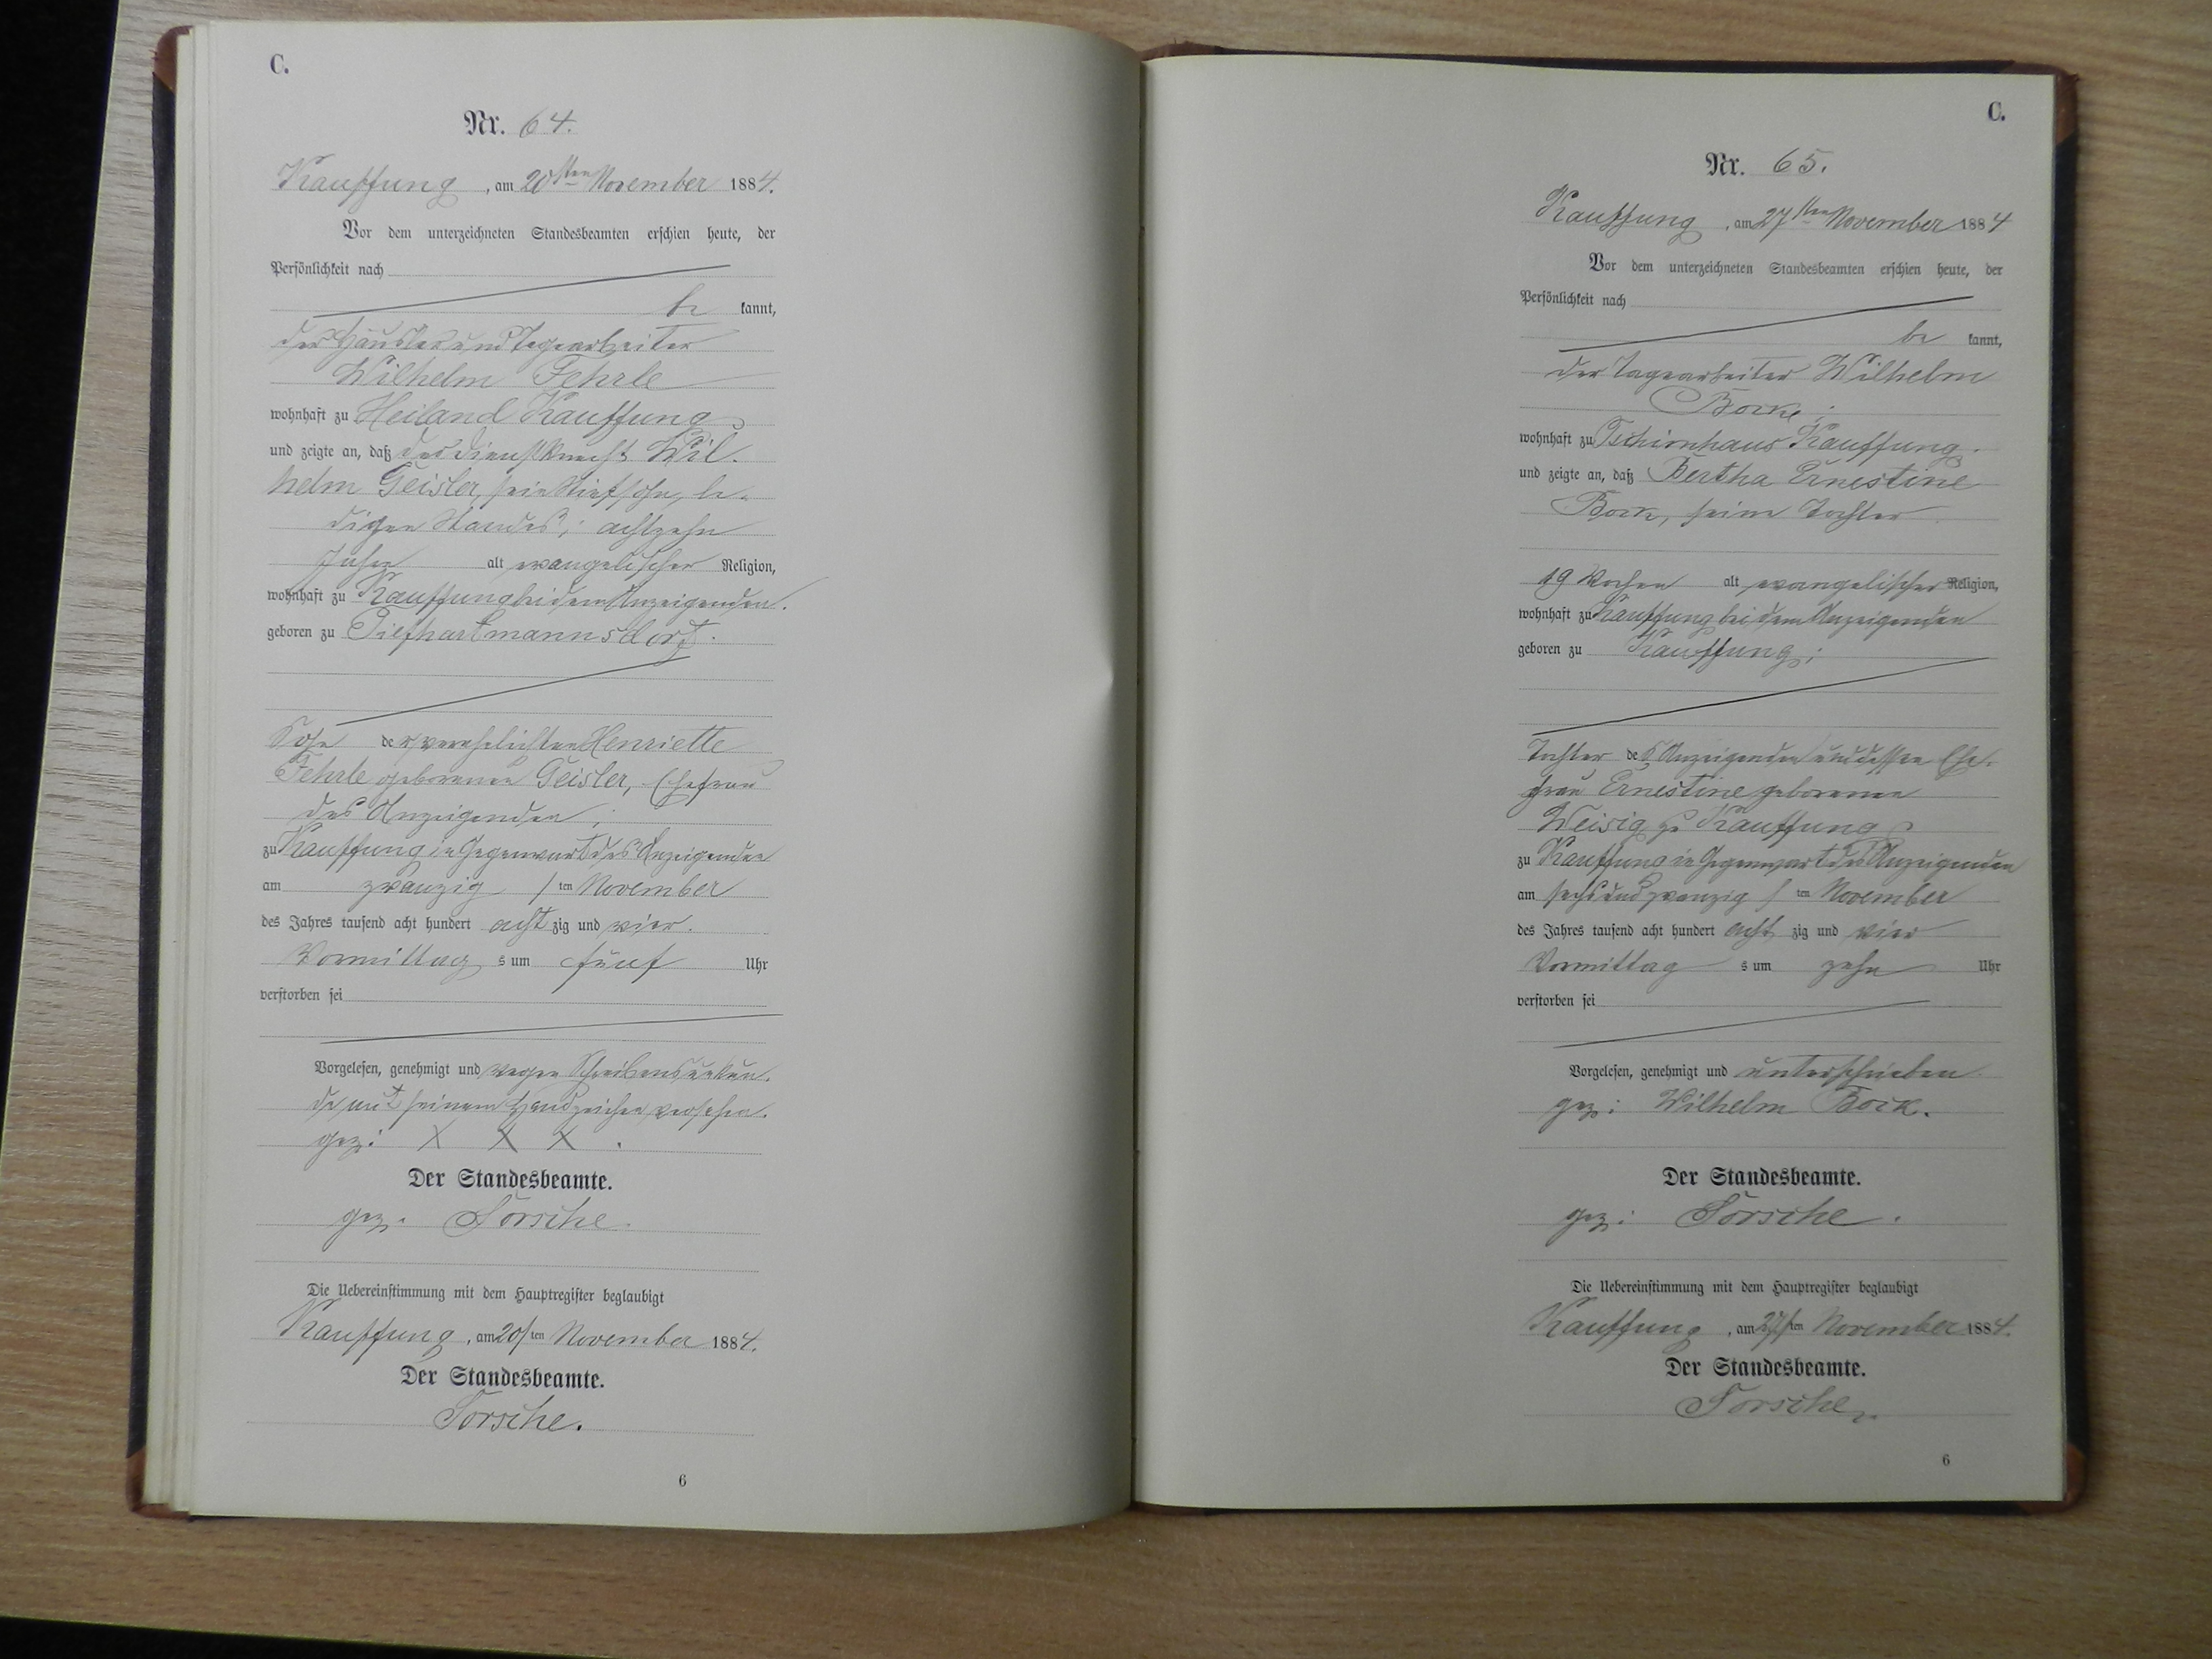 C.
Nr. 64.
Kauffung, am 20sten November 1884.
Vor dem unterzeichneten Standesbeamten erschien heute, der
Persönlichkeit nach
be kannt,
der Häusler und Tagearbeiter
Wilhelm Fehrle
wohnhaft zu Heiland Kauffung
und zeigte an, daß der Dienstknecht Wil-
helm Geisler, sein Stiefsohn, le-
digen Standes, achtzehn
Jahre alt evangelischer Religion,
wohnhaft zu Kauffung bei dem Anzeigenden.
geboren zu Tiefhartmannsdorf.
Sohn der verehelichten Henriette
Fehrle geborenen Geisler, Ehefrau
des Anzeigenden;
zu Kauffung in Gegenwart des Anzeigenden
am zwanzigsten November
des Jahres tausend acht hundert achtzig und vier.
Vormittags um fünf Uhr
verstorben sei
Vorgelesen, genehmigt und wegen Schreibensunkun-
de mit seinem Handzeichen versehen.
gez: X X X.
Der Standesbeamte.
gez. Torsche.
Die Uebereinstimmung mit dem Hauptregister beglaubigt
Kauffung, am 20sten November 1884.
Der Standesbeamte.
Torsche.
6
C.
Nr. 65.
Kauffung, am 27sten November 1884
Vor dem unterzeichneten Standesbeamten erschien heute, der
Persönlichkeit nach
be kannt,
der Tagearbeiter Wilhelm
Bork;
wohnhaft zu Tschirnhaus Kauffung.
und zeigte an, daß Bertha Ernestine
Bork, seine Tochter
19 Wochen alt evangelischer Religion,
wohnhaft zu Kauffung bei dem Anzeigenden
geboren zu Kauffung;
Tochter des Anzeigenden und dessen Ehe-
frau Ernestine geborenen
Weisig zu Kauffung
zu Kauffung in Gegenwart des Anzeigenden
am sechsundzwanzigsten November
des Jahres tausend acht hundert achtzig und vier
Vormittags um zehn Uhr
verstorben sei
Vorgelesen, genehmigt und unterschrieben
gez: Wilhelm Bork.
Der Standesbeamte.
gez: Torsche.
Die Uebereinstimmung mit dem Hauptregister beglaubigt
Kauffung, am 27sten November 1884.
Der Standesbeamte.
Torsche.
6